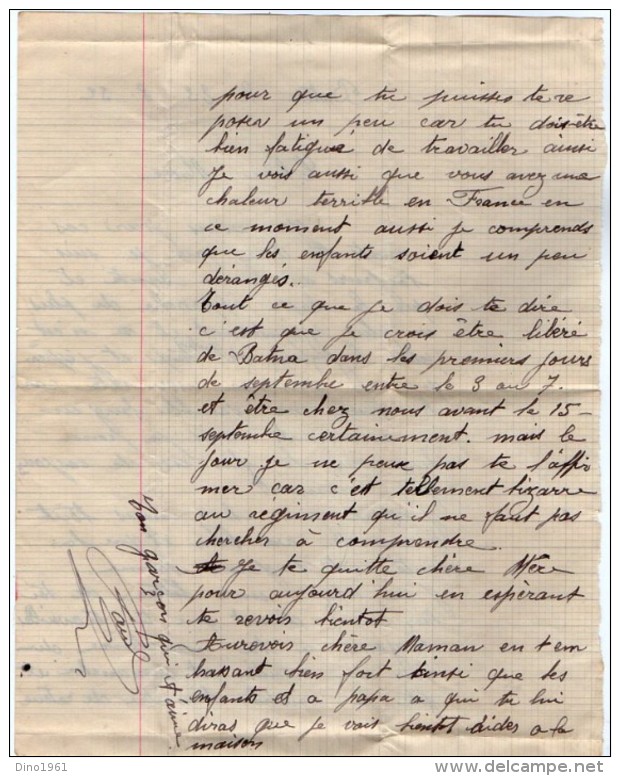 pour que tu puisses te re
poser un peu car tu dois être
bien fatigué de travailler ainsi
Je vois aussi que vous avez une
chaleur terrible en France en
ce moment aussi je comprends
que les enfants soient un peu
dérangés.
Tout ce que je dois te dire
c'est que je crois être libéré
de Batna dans les premiers jours
de septembre entre le 3 au 7.
et être chez nous avant le 15
septembre certainement. mais le
jour je ne peux pas te l'affir
mer car c'est tellement bizarre
au régiment qu'il ne faut pas
chercher à comprendre.
Je te quitte chère Mère
pour aujourd'hui en espérant
te revois bientot
Aurevois chère Maman en t'em
bassant bien fort ainsi que les
enfants et a papa a qui tu lui
diras que je vais bientot aider a la
maison
Ton garçon qui t'aime
Dino1961
delcampe.net